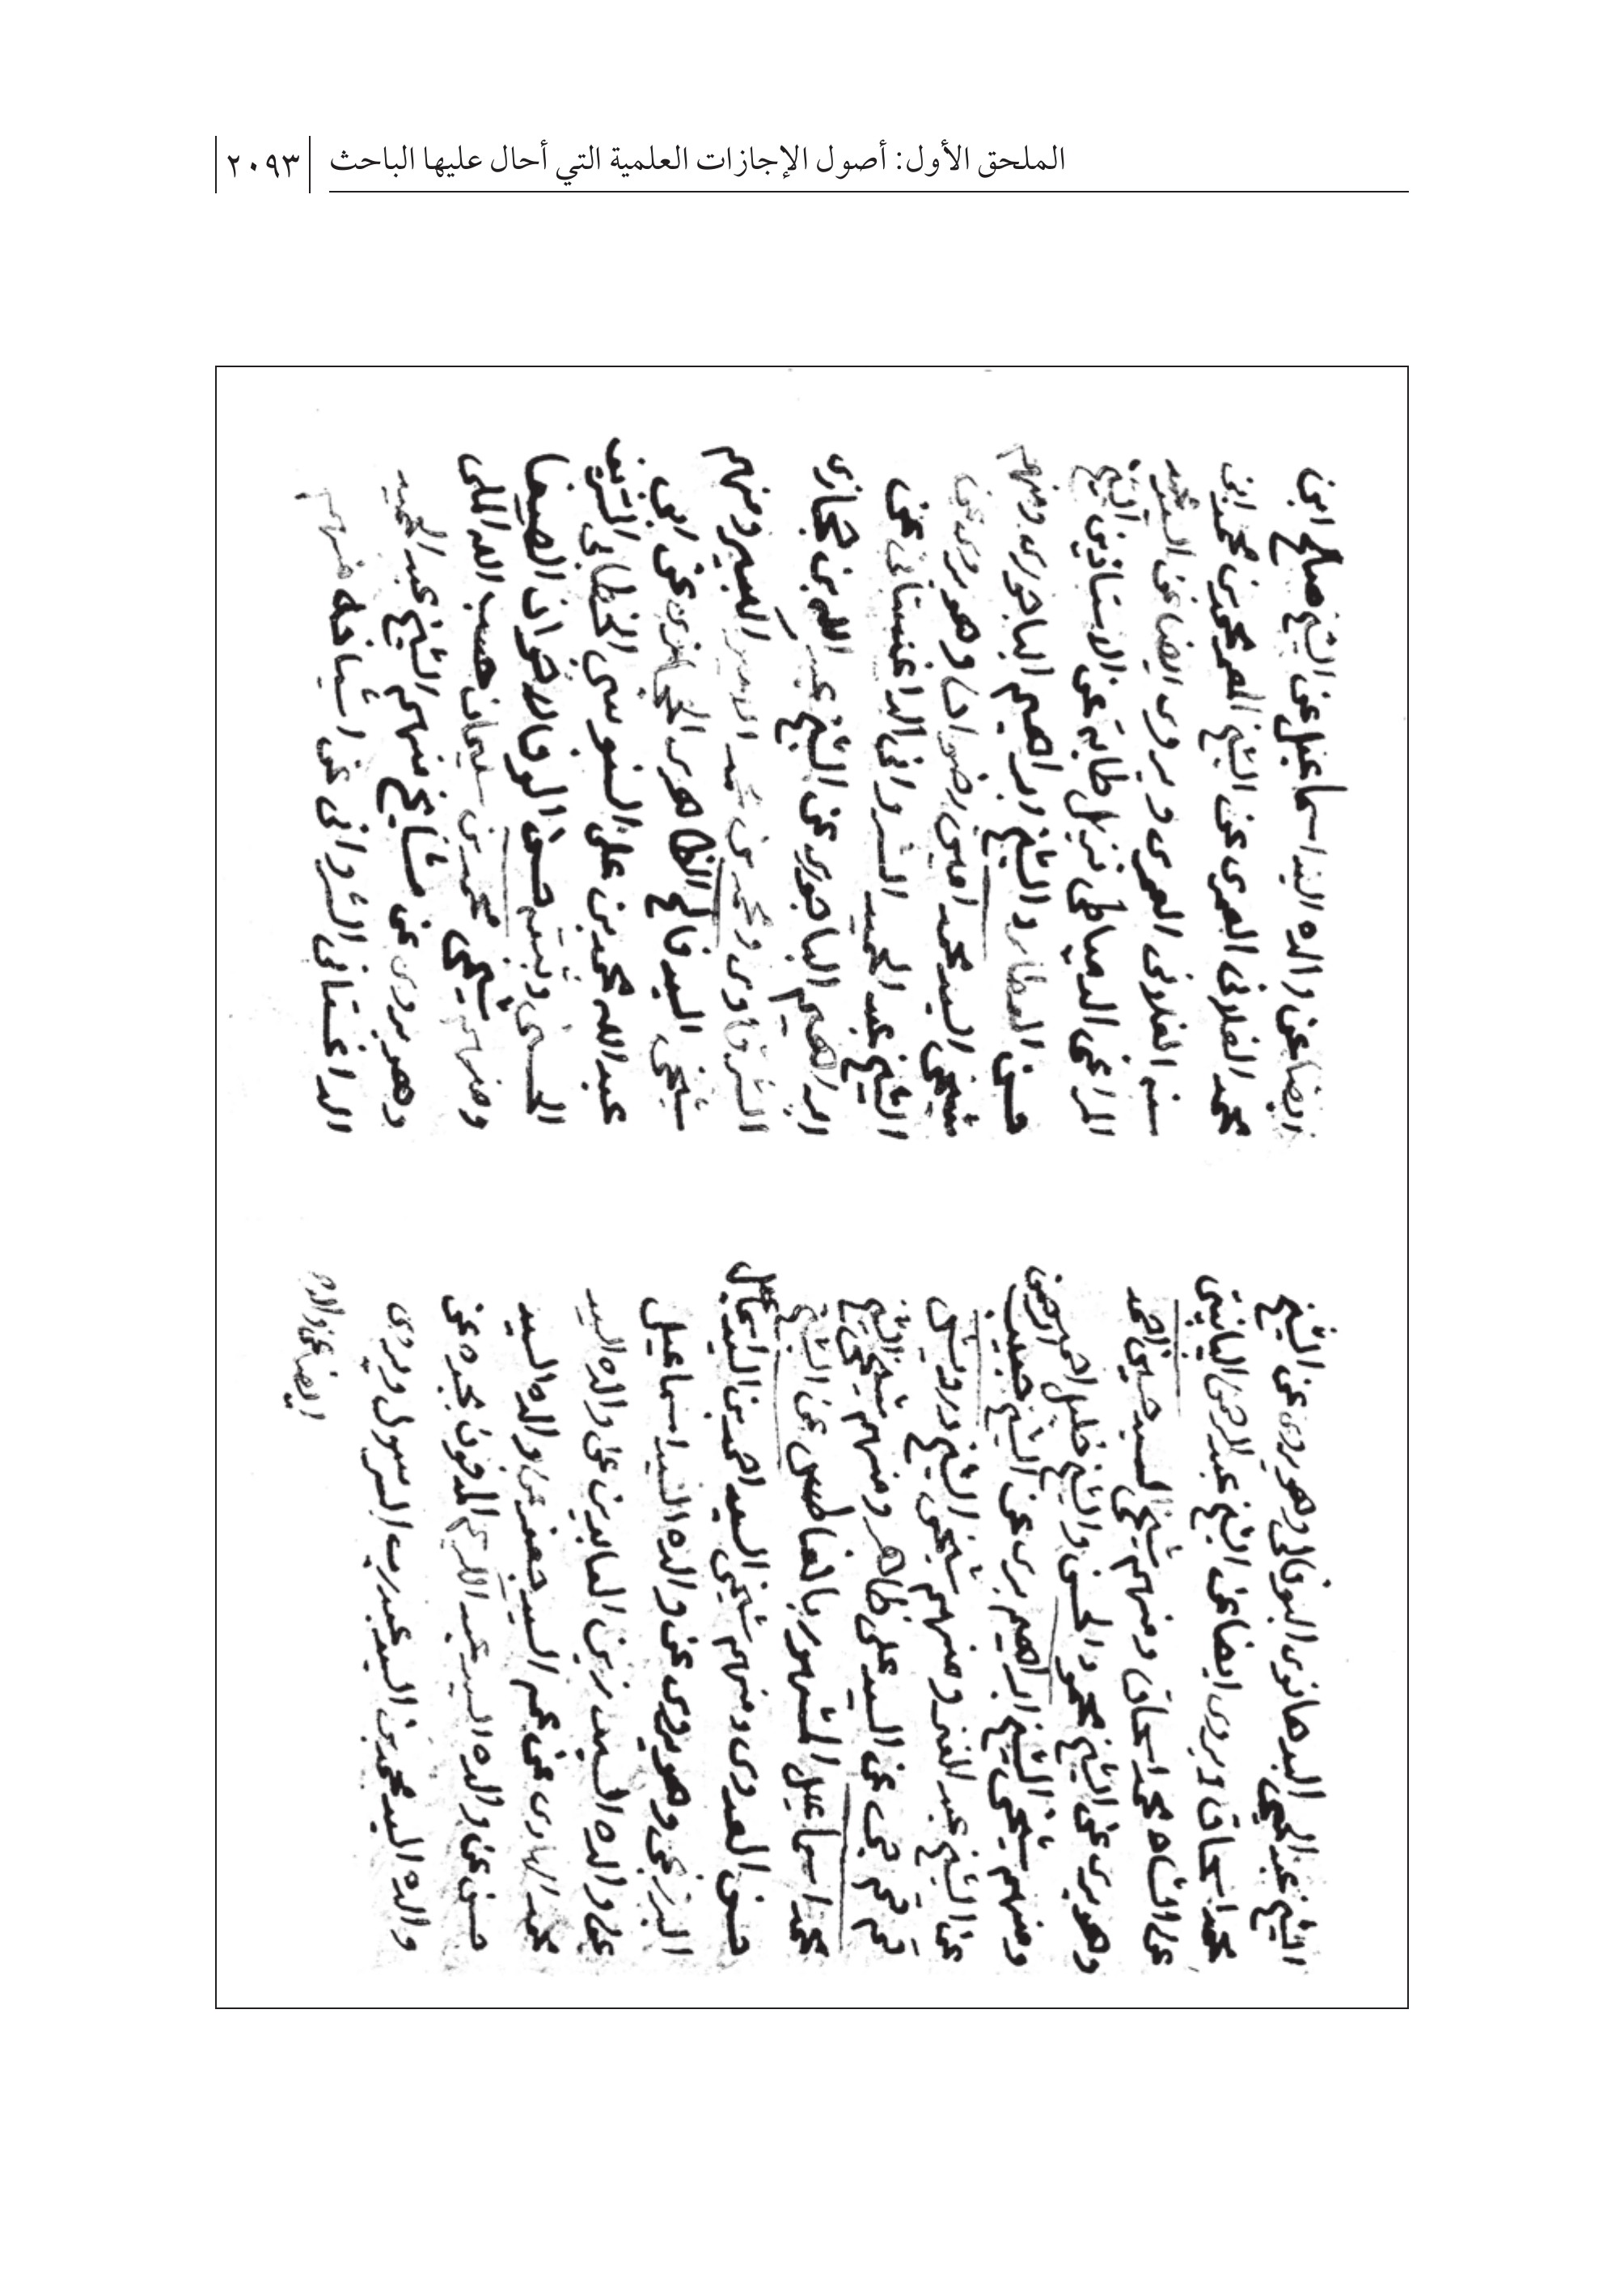 الملحق الأول: أصول الإجازات العلمية التي أحال عليها الباحث ٢٠٩٣
الشيخ عبد الحي البدهانوي البوفالي وهو يروى عن الشيخ
محمد اسحاق ويروى ايضا عن الشيخ عبد الرحمن البانيبتى
عن الشاه محمد اسحاق ومنهم شيخي السيد حسين احمد
وهو يروى عن الشيخ محمود الحسن والشيخ خليل احمد
ومنهم شيخي الشيخ ابراهيم برى عن الشيخ حبيب الرحمن
عن الشيخ عبد الغنى ومنهم شيخي الشيخ درويش
قمقمجى عن السيد على ظاهر ومنهم شيخي الشيخ
محمد اسماعيل المشهور عن الشيخ
حسن العدوى ومنهم شيخي السيد احمد بن السيد اسماعيل
البرزنجى وهو يروى عن والده السيد اسماعيل
عن والده السيد زين العابدين عن والده السيد
محمد الهادى عن عمه السيد جعفر عن والده السيد
حسن عن والده السيد عبد الكريم المدفون بجده عن
والده السيد محمد بن السيد عبد رب الرسول ويروى
ايضا عن والده
ايضا عن والده السيد اسماعيل عن الشيخ صالح ابن
محمد الفلانى العمرى عن الشيخ المعمر محمد بن محمد ابن
سنه الفلانى العمرى ويروى ايضا عن السيد محمد
المراغى الدمياطى نزيل طابة عن الاستاذين الشيخ
حسن العطار والشيخ ابراهيم الباجورى ومنهم
شيخي السيد محمد امين رضوان وهو يروى عن
الشيخ عبد الحميد الشروانى الداغستانى عن
ابراهيم الباجورى عن الشيخ عبد الله بن حجازى
الشرقاوى ومحمد بن محمد الامير الكبير ومنهم
شيخي السيد فالح الظاهرى الحجازى عن ابى
عبد الله محمد بن على السنوسى الخطابى الشريف
الحسنى وبيته حسن الوفا لاخوان الصفا
ومنهم شيخي محمد بن سليمان حسب الله المكى
وهو يروى عن مشايخ منهم الشيخ عبد الحميد
الداغستانى الشروانى عن اشياخه منهم